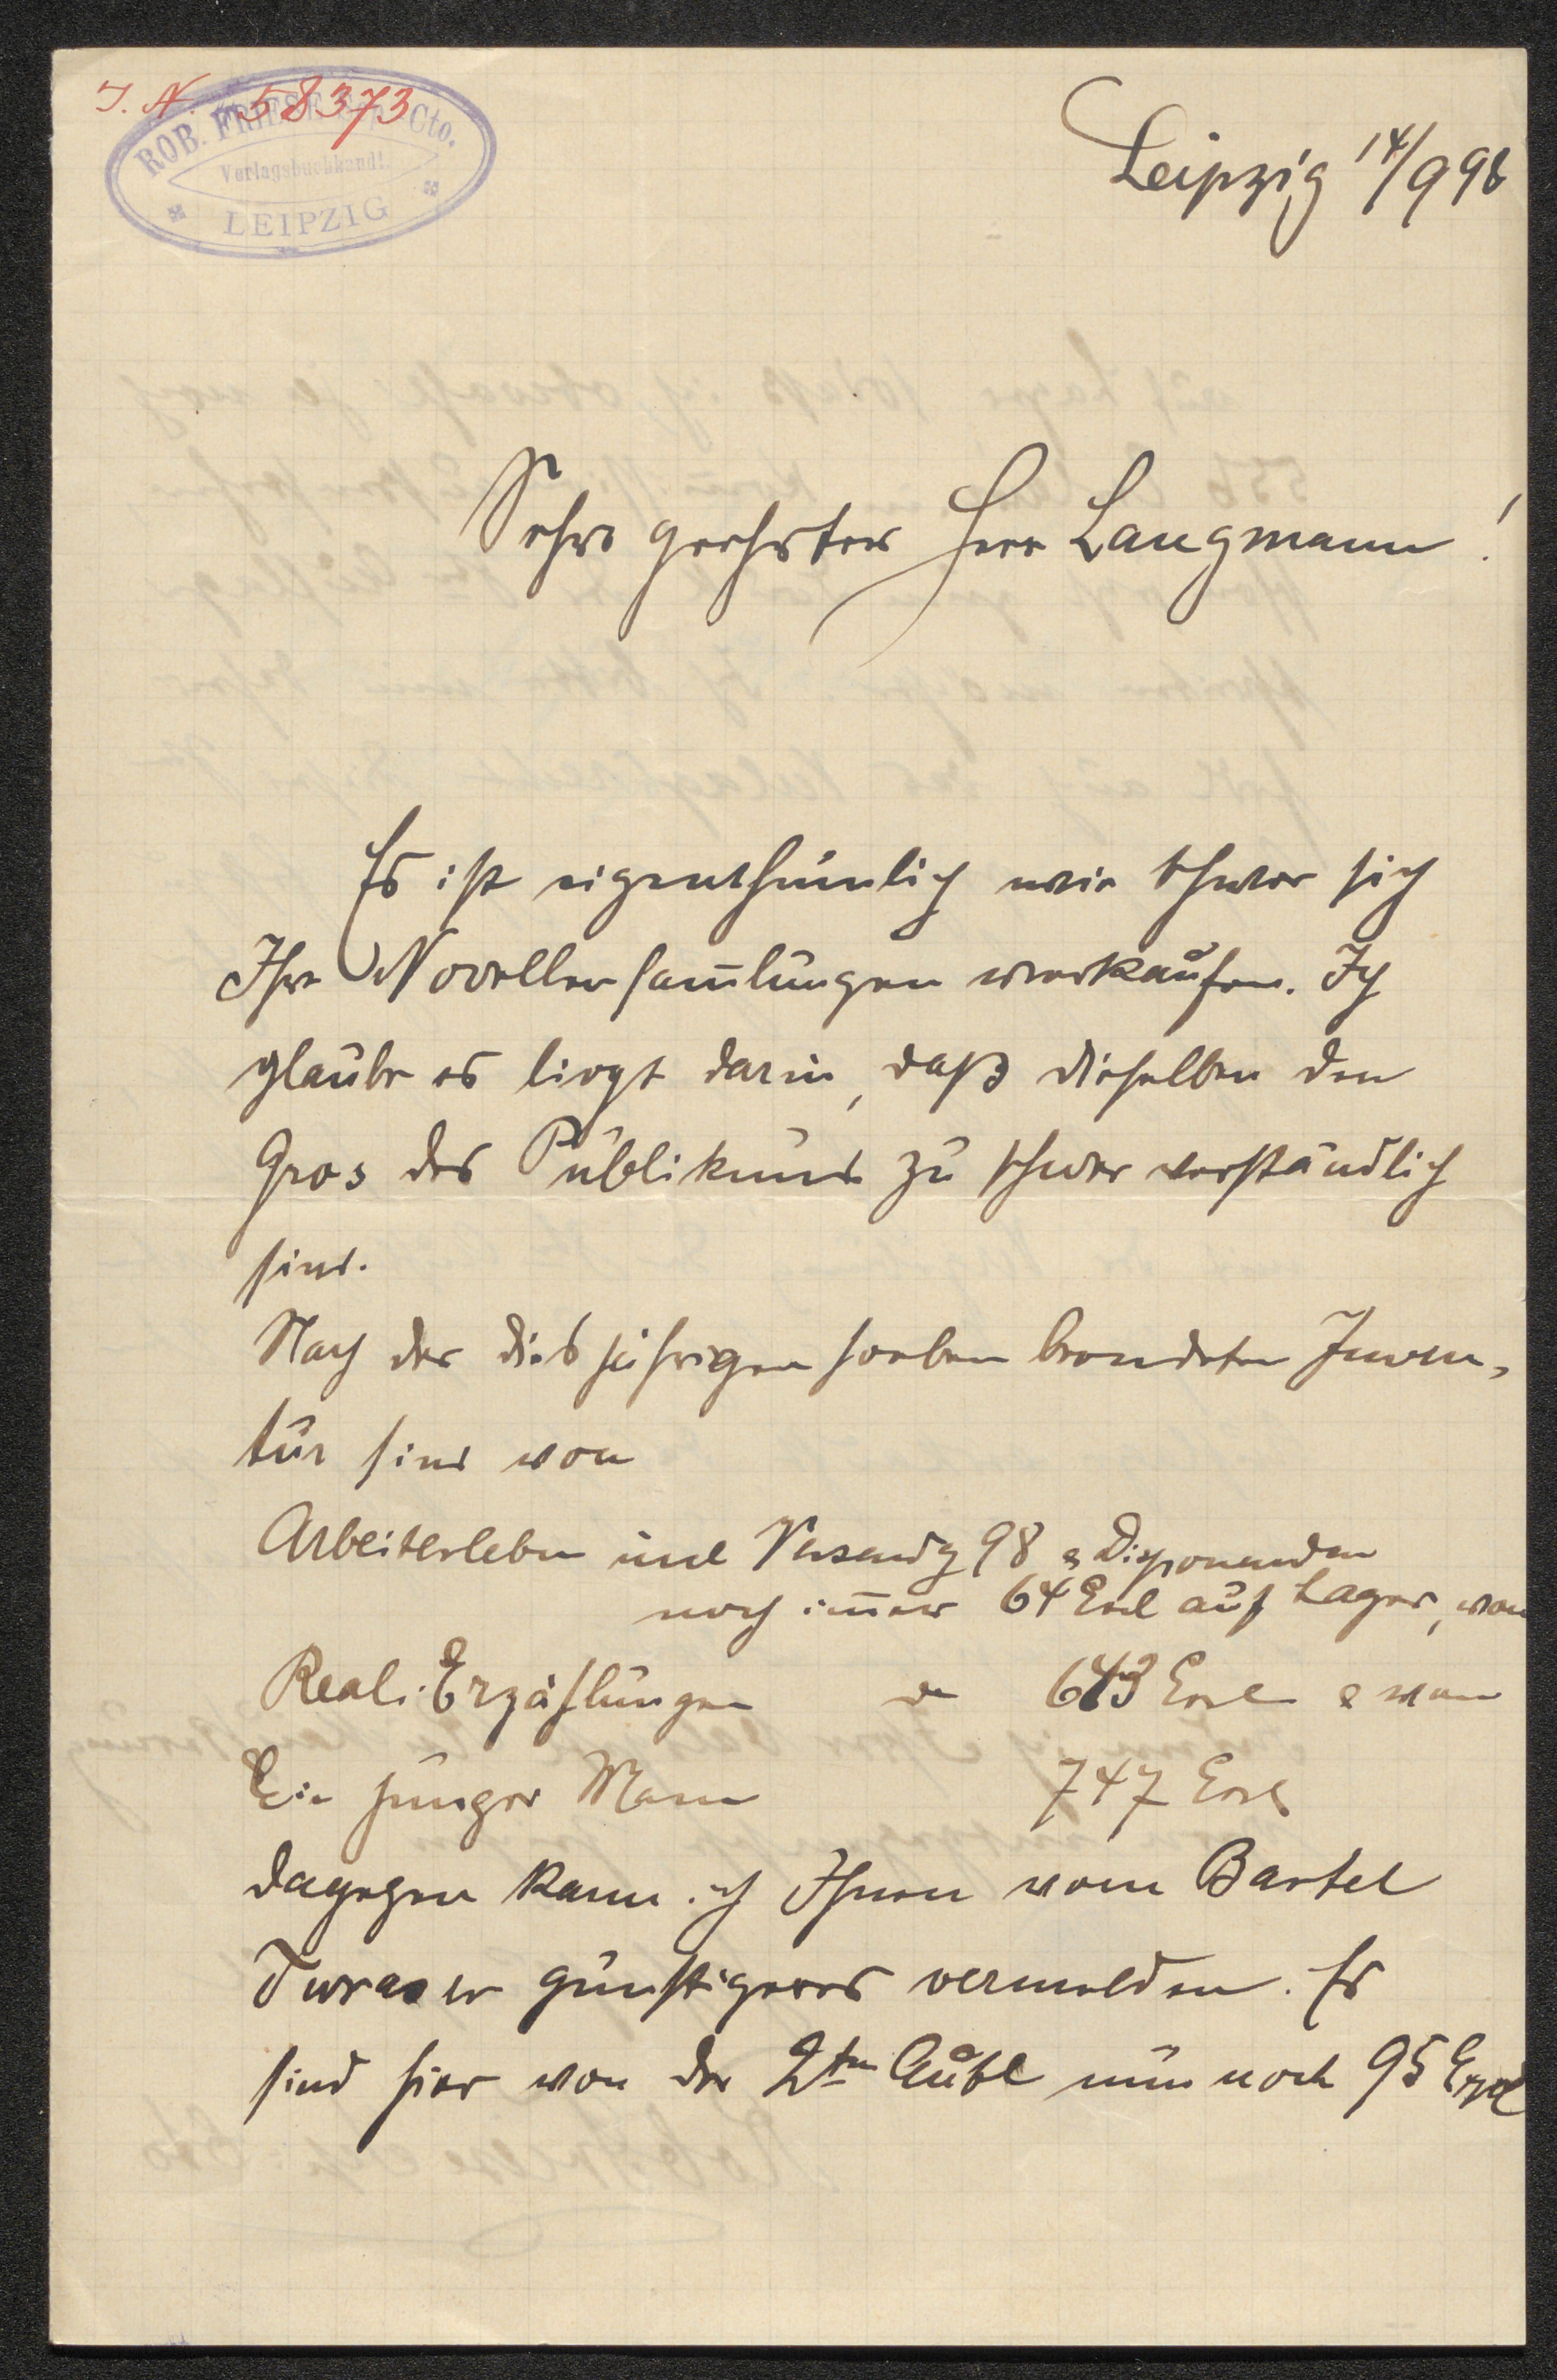 J. N. 58373
ROB. FRIESE Sep.-Cto.
Verlagsbuchhandl.
LEIPZIG
Leipzig 14/9 98
Sehr geehrter Herr Langmann!
Es ist eigenthümlich wie schwer sich
Ihre Novellensam̅lungen verkaufen. Ich
glaube es liegt darin, daß dieselben den
Gros des Publikums zu schwer verständlich
sind.
Nach der diesjährigen soeben beendeten Inven-
tur sind von
Arbeiterleben incl Versendg 98 & Disponenden
noch im̅er 64 Exl auf Lager, von
Real. Erzählungen do 613 Exl & von
Ein junger Mann 747 Exl
dagegen kann ich Ihnen vom Bartel
Turaser günstigeres vermelden. Es
sind hier von der 2ten Aufl nun noch 95 Expl